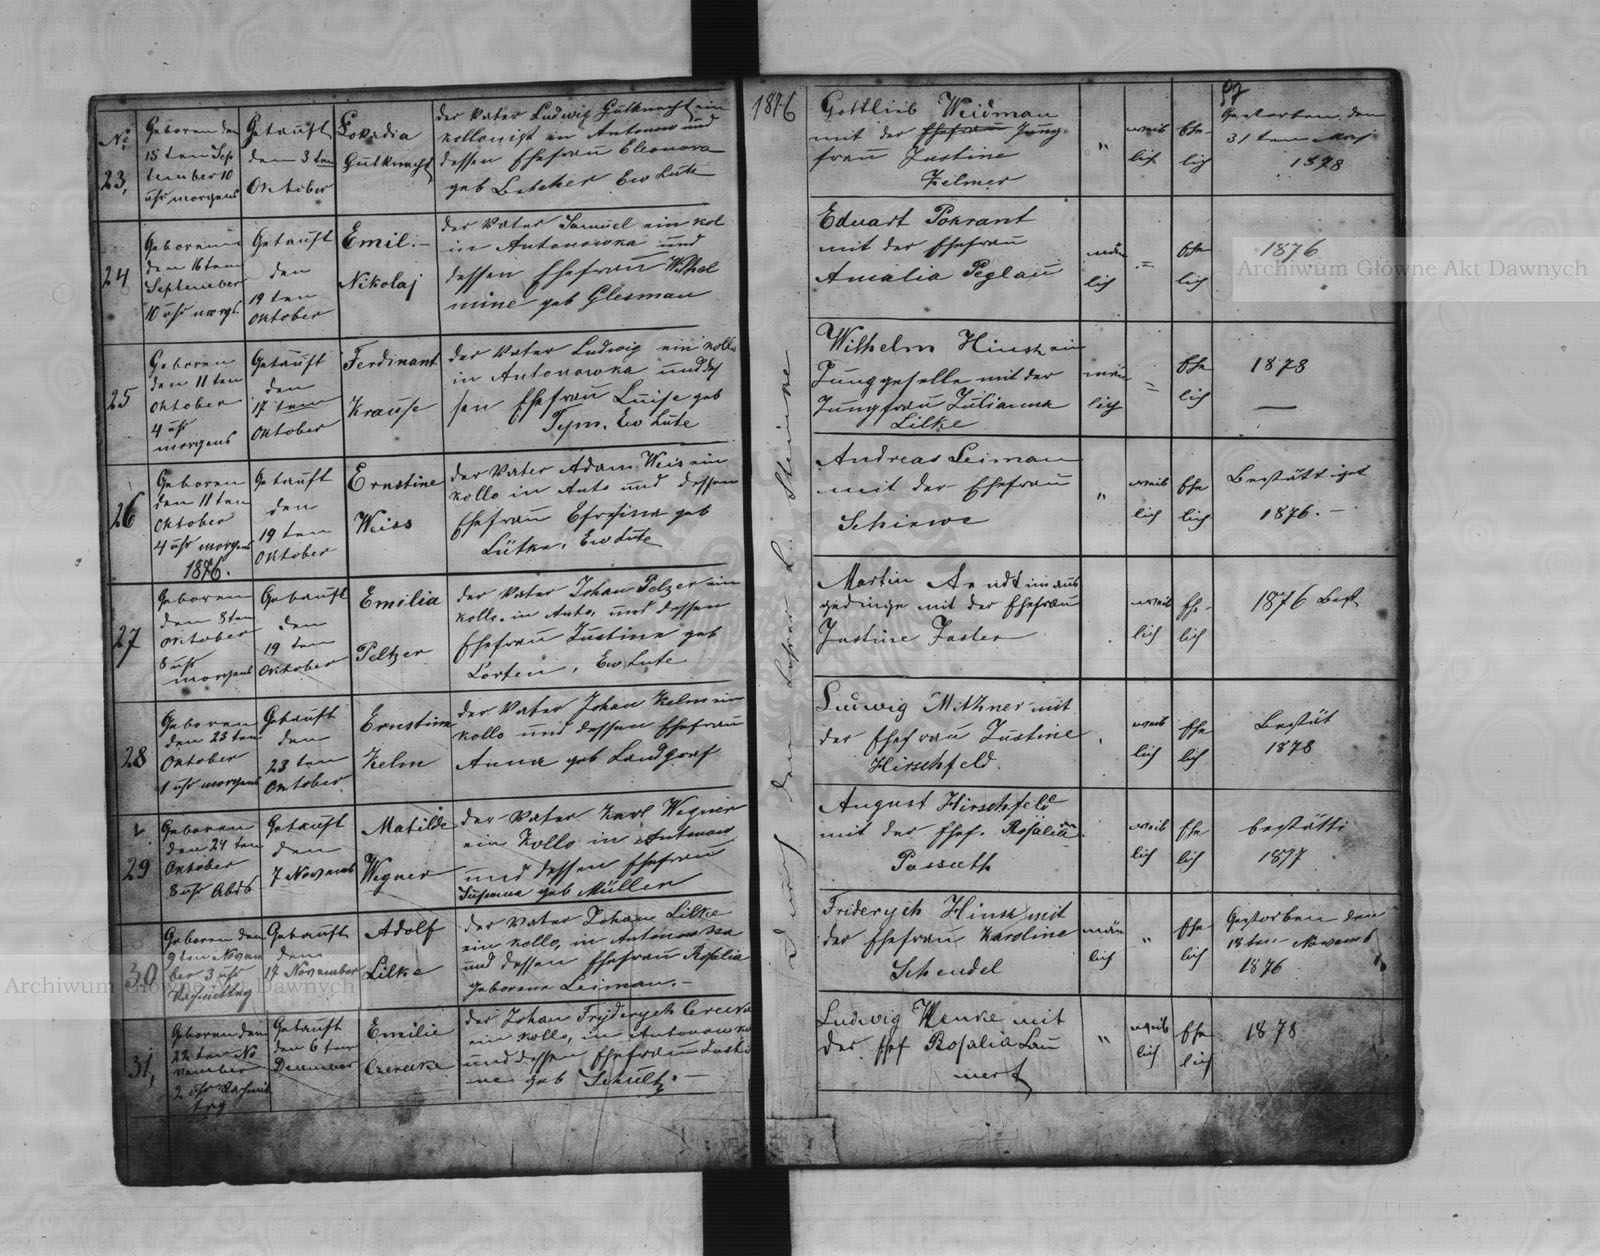 1876
97
No
23,
Geboren den
15 ten Sep
tember 10
uhr morgens
Getauft
den 3 ten
Oktober
Lokadia
Gutknecht
der Vater Ludwig Gutknecht ein
kollonist in Antonow und
dessen Ehefrau Eleonora
geb Ew Lute
Gottlieb Weidman
mit der Ehefrau Jung
frau Justine
Zelmer
"
weib
lich
Ehe-
lich
Gestorben den
31 ten May
1878
24
Geboren
den 16 ten
September
10 uhr morgs.
Getauft
den
19 ten
Oktober
Emil.-
Nikolaj
der Vater Samuel ein kol
in Antonowka und
dessen Ehefrau Wilhel
mine geb Glesman
Eduart Pokrant
mit der Ehefrau
Amalia Peglau
män
lich
=
Ehe
lich
1876
25
Geboren
den 11 ten
Oktober
4 uhr
morgens
Getauft
den
17 ten
Oktober
Ferdinant
Krause
der Vater Ludwig ein kollo
in Antonowka und des
sen Ehefrau Luise geb
Tym. Ew Lute
Wilhelm Hinsk ein
Junggeselle mit der
Jungfrau Julianna
Lilke
män
lich
=
Ehe
lich
1878
—
26
Geboren
den 11 ten
Oktober
4 uhr morgens
1876.
Getauft
den
19 ten
Oktober
Ernstine
Weiss
der Vater Adam Weis ein
kollo in Anto und dessen
Ehefrau Efrosina geb
Lütke. Ew Lute
Andreas Leiman
mit der Ehefrau
Schiewe
"
weib
lich
Ehe
lich
Bestättiget
1876.-
27
Geboren
den 8 ten
Oktober
8 uhr
morgens
Getauft
den
19 ten
Oktober
Emilia
Peltzer
der Vater Johan Pelzer ein
kollo. in Anto, und dessen
Ehefrau Justine geb
Lorten, Ew Lute
Martin Arndt im aus
gedinge mit der Ehefrau
Justine Jaster
weib
lich
Ehe-
lich
1876 Best
28
Geboren
den 23 ten
Oktober
1 uhr morgens
Getauft
den
23 ten
Oktober
Ernstine
Kelm
der Vater Johan Kelm ein
kollo und dessen Ehefrau
Anna geb Landgraf
Ludwig Mithner mit
der Ehefrau Justine
Hirschfeld.
weib
lich
Ehe
lich
Bestät
1878
29
Geboren
den 24 ten
Oktober
8 uhr Abds
Getauft
den
7 Novemb
Matilde
Wegner
der Vater Karl Wegner
ein Kollo in Antonow
und dessen Ehefrau
Susanna geb Müller
August Hirschfeld
mit der Ehef. Rosalia
Passuth
weib
lich
Ehe
lich
bestätti
1877
30
Geboren den
9 ten Novem
ber 3 uhr
Nachmittag
Getauft
den
14 November
Adolf
Lilke
der Vater Johan Lilke
ein kollo, in Antonowka
und dessen Ehefrau Rosalia
geborene Leiman.-
Friderych Hinsk mit
der Ehefrau Karoline
Schendel
män
lich
"
Ehe
lich
Gestorben den
18 ten Novemb
1876
31,
Geboren den
22 ten No
vember
2 uhr Nachmit
tag
Getauft
den 6 ten
Dezember
Emilie
der Johan Fryderych
ein kollo, in Antonowka
und dessen Ehefrau Justi
ne geb Schultz.-
Ludwig Henke mit
der Ehef Rosalia Lau
mert
"
weib
lich
Ehe
lich
1878
Archiwum Główne Akt Dawnych
Archiwum Główne Akt Dawnych